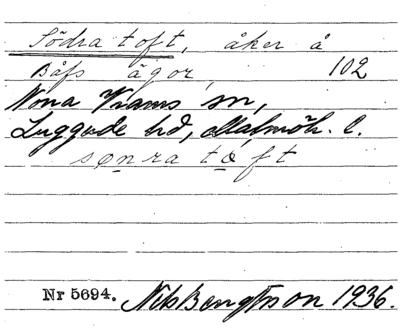 Södra toft, åker å
Båfs ägor, 102
Norra Vrams sn,
Luggude hd, Malmöh. l.
sønra tòft
Nr 5694. Nils Bengtsson 1936.